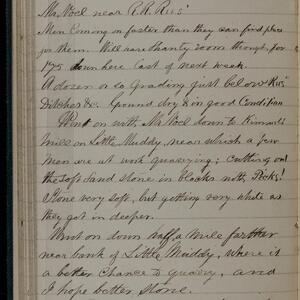 Mr. Noel near R.R. Rus'
Men Coming on faster than they can find place
for them. Will have Shanty room though, for
175 down here East of next week.
A dozen or so Grading just below Rus'
Ditches &c. Ground dry & in good Condition
Went on with Mr. Noel down to
Mill on Little Muddy, near which a few
men are at work quarrying; cutting out
the soft Sand stone in blocks with Picks!
Stone very soft, but getting very white as
they get in deeper.
Went on down half a mile farther
near bank of Little Muddy, where is
a better Chance to quarry, and
I hope better stone.